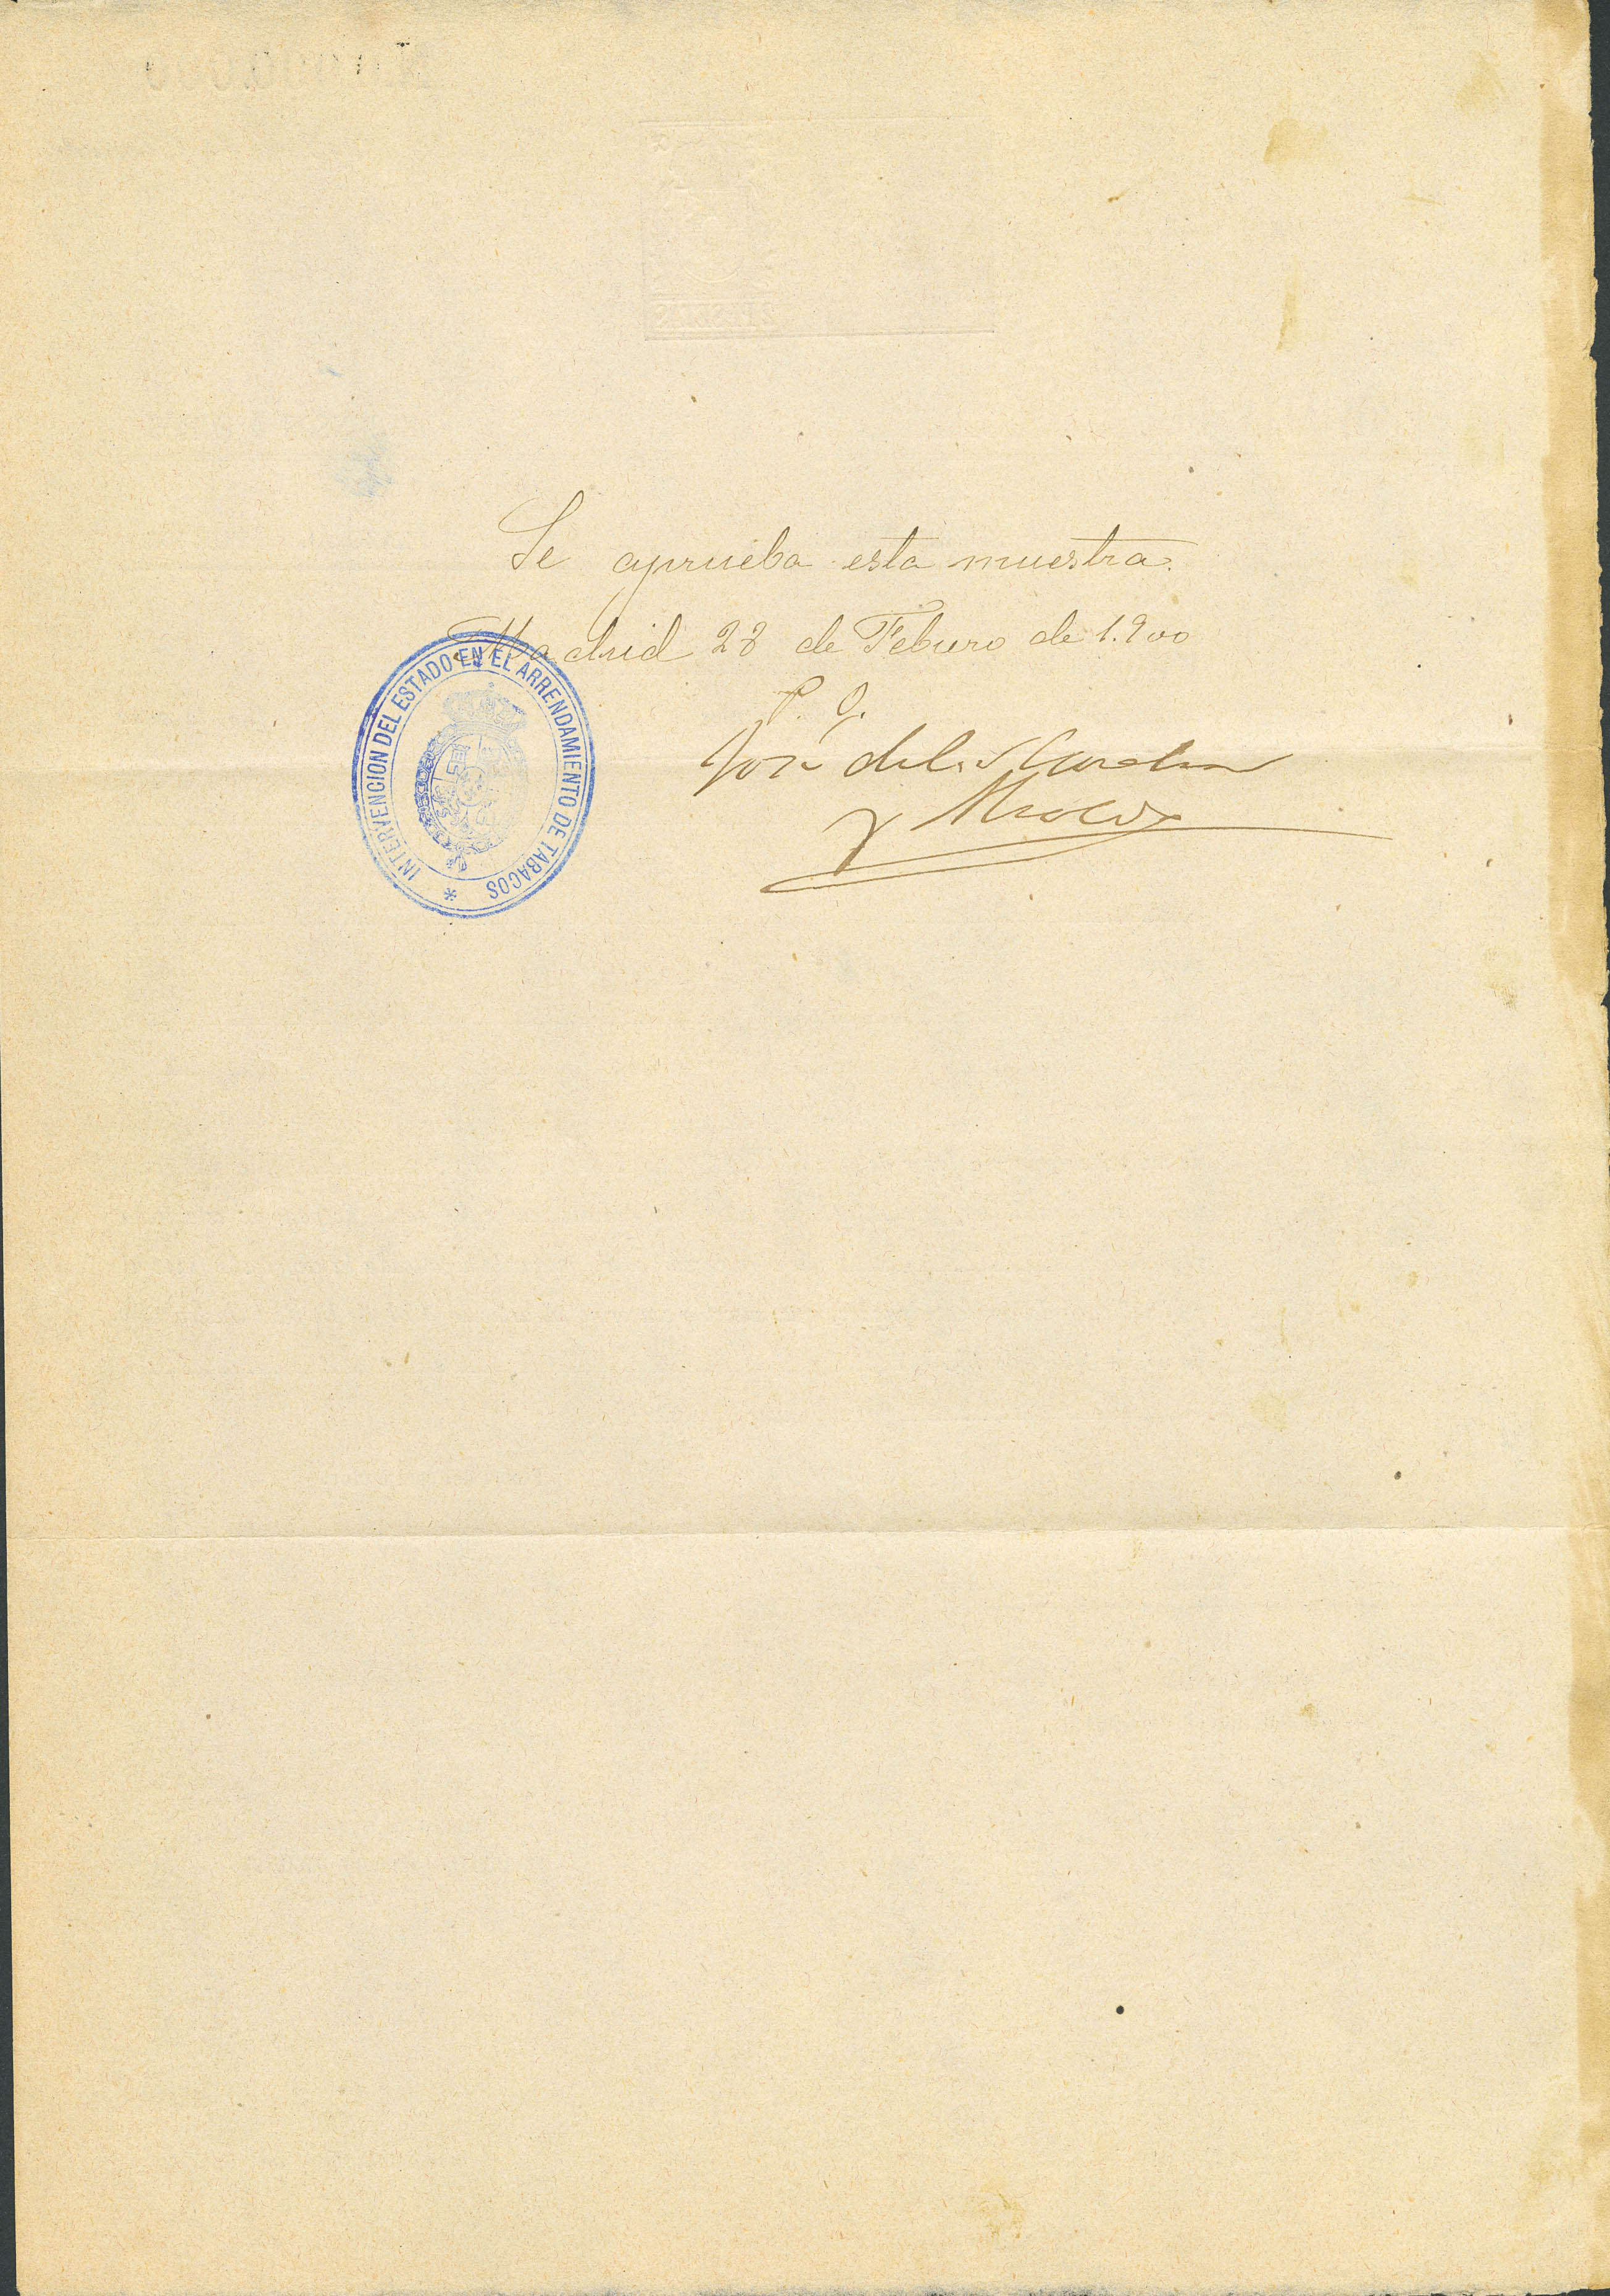 Se aprueba esta muestra.
Madrid 28 de Febrero de 1.900
P. O.
José del
y
INTERVENCION DEL ESTADO EN EL ARRENDAMIENTO DE TABACOS *